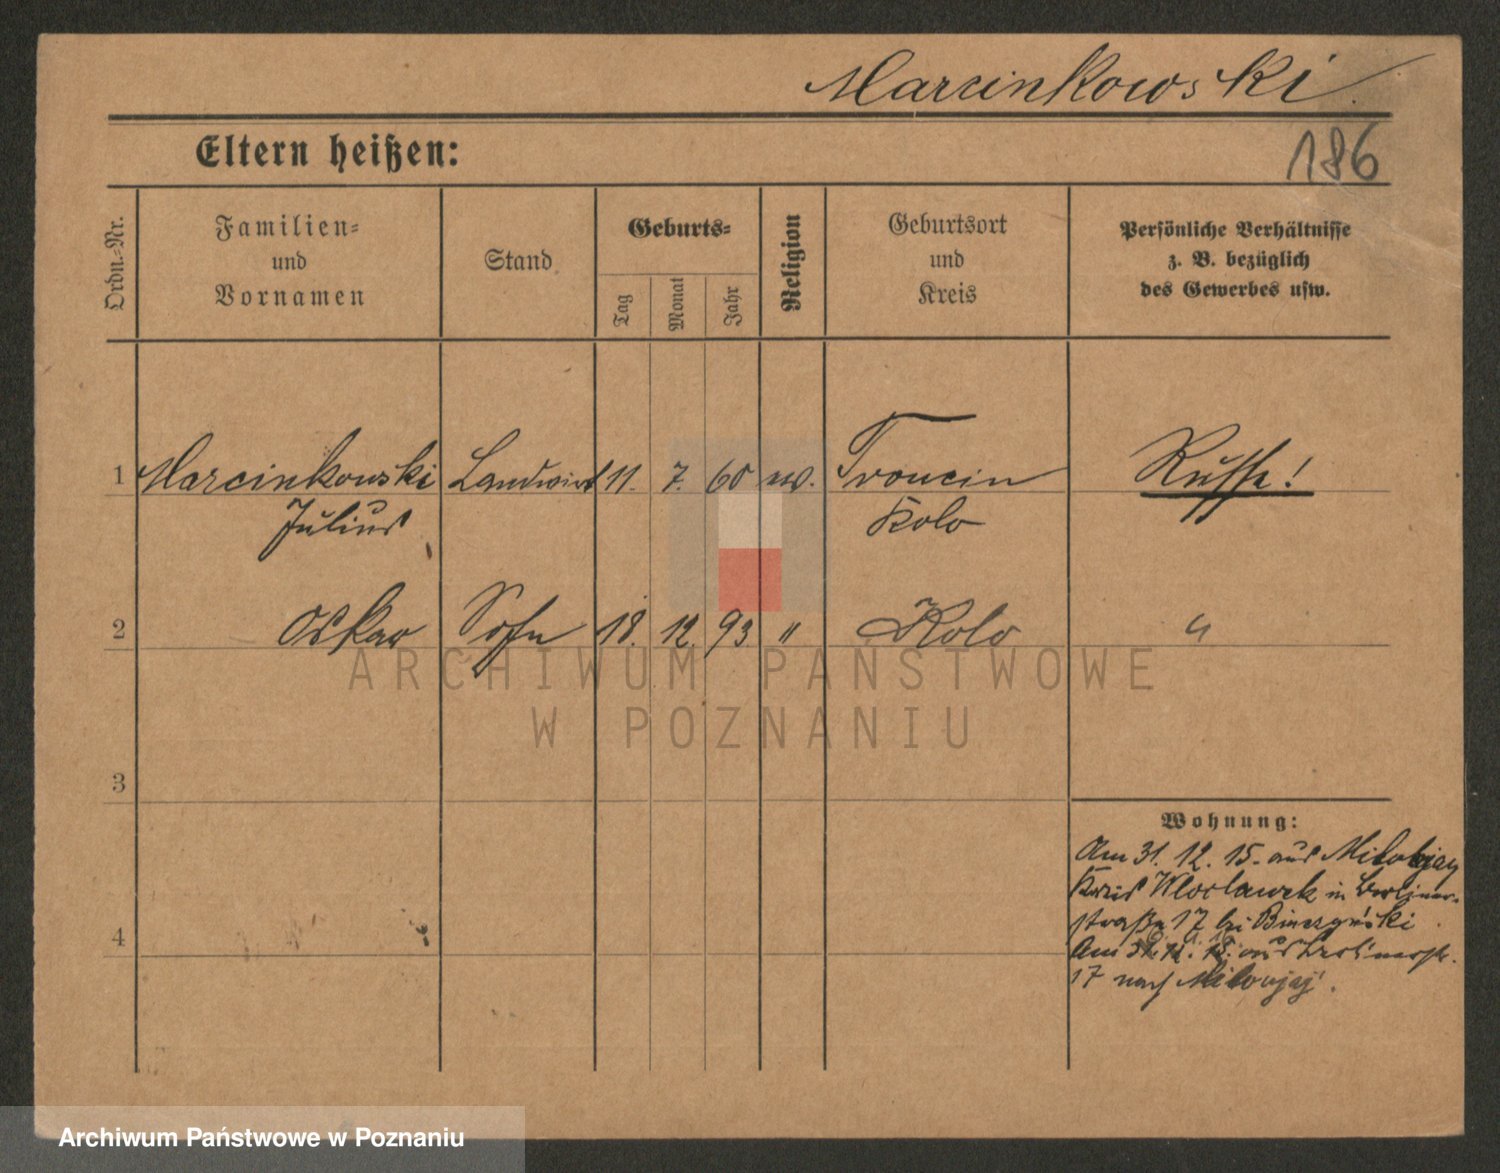 Marcinkowski.
186
Eltern heißen:
Ordn.-Nr.
Familien- und Vornamen
Stand
Geburts-
Tag
Monat
Jahr
Religion
Geburtsort und Kreis
Persönliche Verhältnisse
z. B. bezüglich
des Gewerbes usw.
1 Marcinkowski Landwirt 11. 7. 60 Russe!
Julius Kolo
2 Oskar Sohn 18. 12. 93 " Kolo "
3
Wohnung:
Am 31. 12. 15. aus
Kreis Wloclawek in Berliner-
straße 17 bei
4
Am aus Berlinerstr.
17 nach
ARCHIWUM PAŃSTWOWE
W POZNANIU
Archiwum Państwowe w Poznaniu